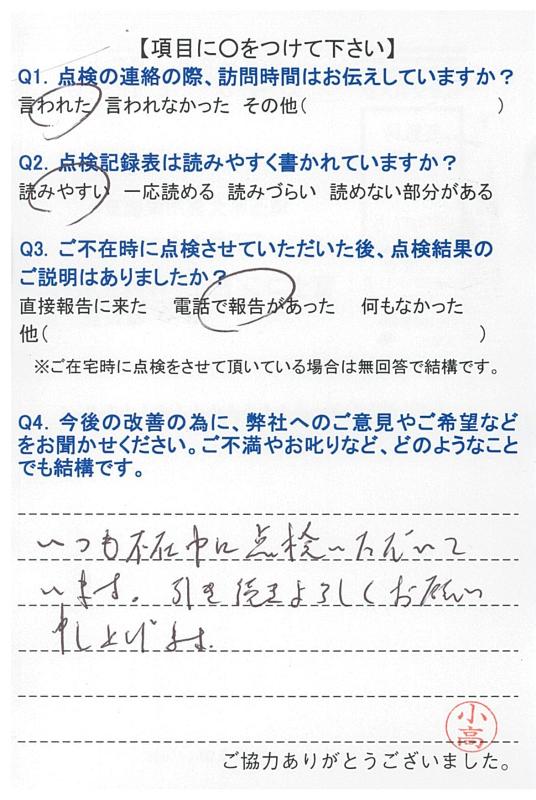 【項目に〇をつけて下さい】
Q1. 点検の連絡の際、訪問時間はお伝えしていますか？
言われた 言われなかった その他( )
Q2. 点検記録表は読みやすく書かれていますか？
読みやすい 一応読める 読みづらい 読めない部分がある
Q3. ご不在時に点検させていただいた後、点検結果の
ご説明はありましたか？
直接報告に来た 電話で報告があった 何もなかった
他( )
※ご在宅時に点検をさせて頂いている場合は無回答で結構です。
Q4. 今後の改善の為に、弊社へのご意見やご希望など
をお聞かせください。ご不満やお叱りなど、どのようなこと
でも結構です。
いつも不在中に点検いただいて
います。引き続きよろしくお願い
申し上げます。
小高
ご協力ありがとうございました。